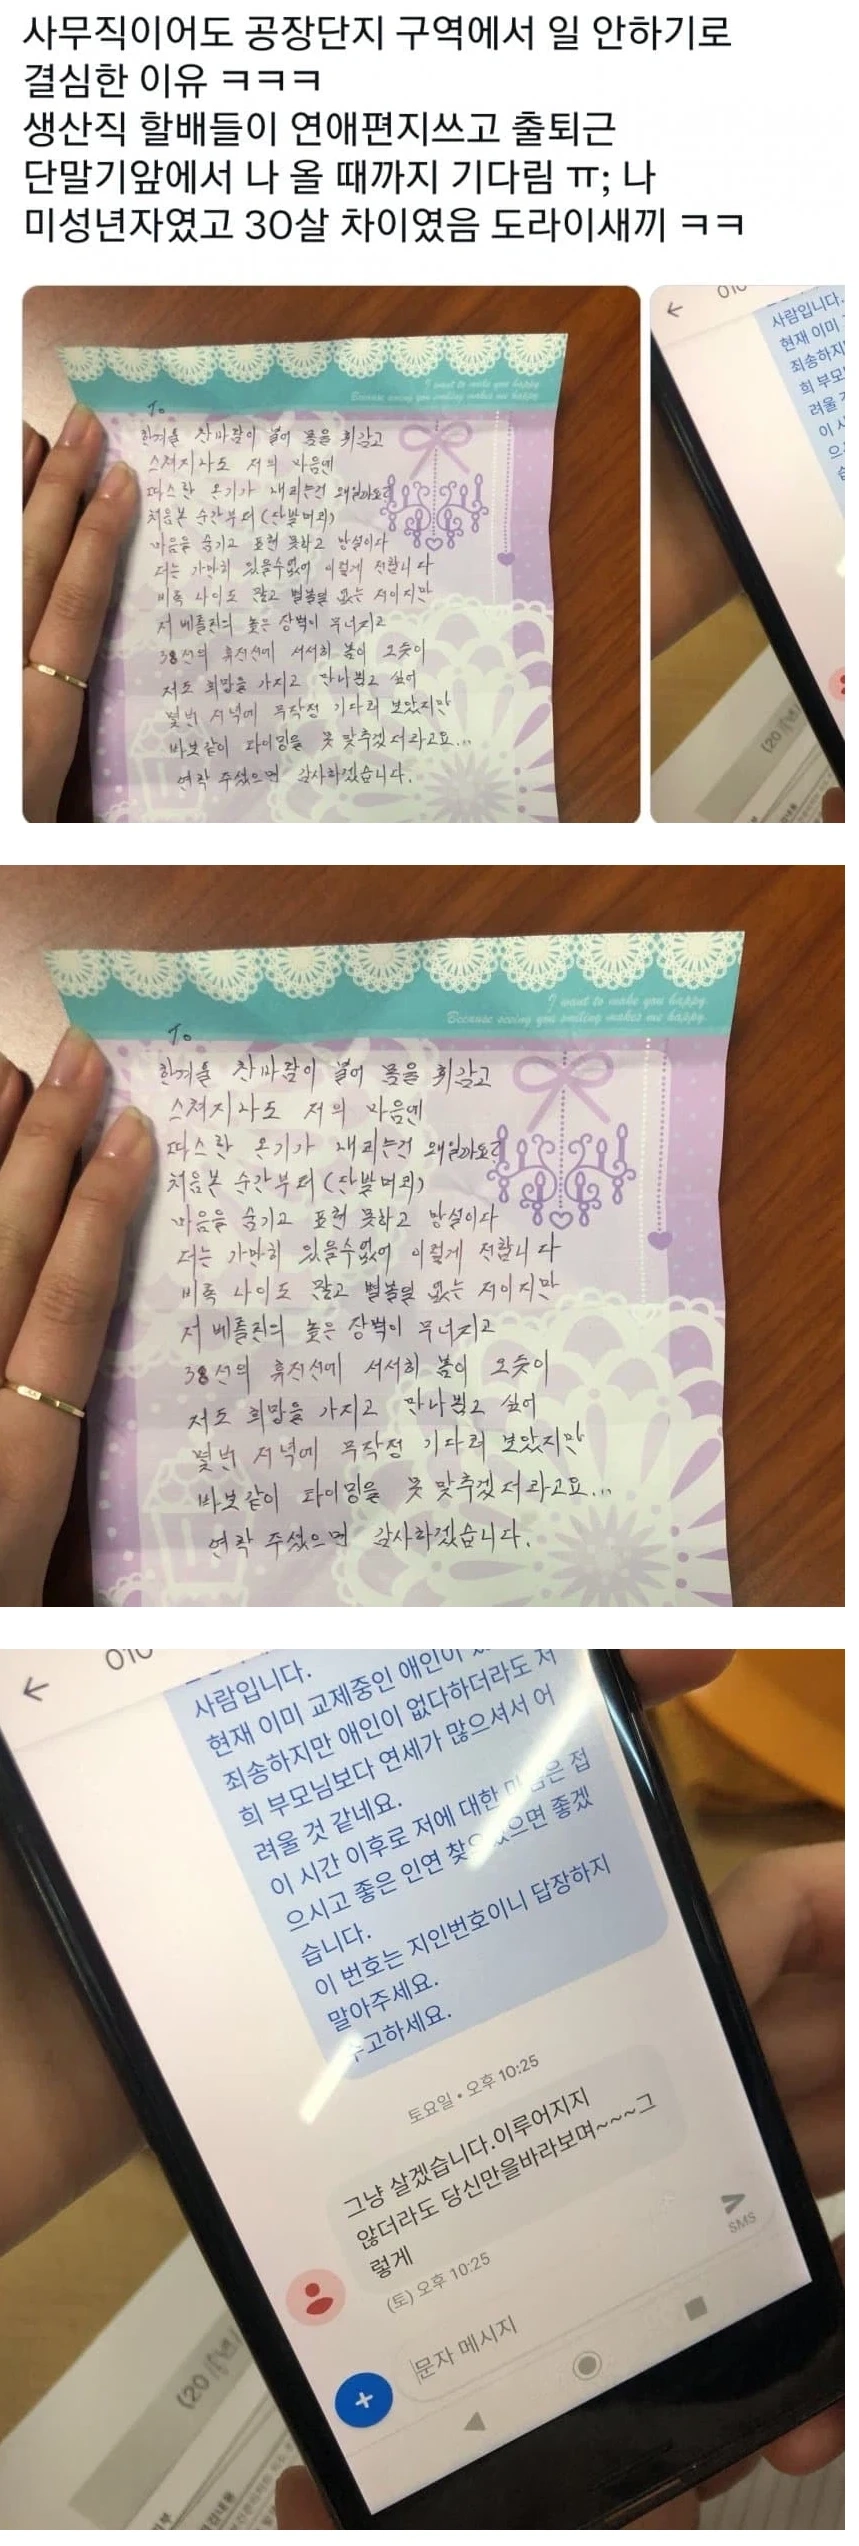 사무직이어도 공장단지 구역에서 일 안하기로
결심한 이유 ㅋㅋㅋ
생산직 할배들이 연애편지쓰고 출퇴근
단말기앞에서 나 올 때까지 기다림 ㅠ; 나
미성년자였고 30살 차이였음 도라이새끼 ㅋㅋ
I want to make you happy.
Because seeing you smiling makes me happy.
To
한겨울 찬바람이 불어 몸을 휘감고
스쳐지나도 저의 마음엔
따스한 온기가 내리는건 왜일까요?
처음본 순간부터 (단발머리)
마음을 숨기고 표현 못하고 망설이다
더는 가만히 있을수없어 이렇게 전합니다
비록 나이도 많고 별볼일 없는 저이지만
저 베를린의 높은 장벽이 무너지고
38선의 휴전선에 서서히 봄이 오듯이
저도 희망을 가지고 만나뵙고 싶어
몇번 저녁에 무작정 기다려 보았지만
바보같이 타이밍을 못 맞추겠더라고요...
연락 주셨으면 감사하겠습니다.
010
사람입니다.
현재 이미
죄송하지
희 부모
려울
이 시
(20
I want to make you happy.
Because seeing you smiling makes me happy.
To
한겨울 찬바람이 불어 몸을 휘감고
스쳐지나도 저의 마음엔
따스한 온기가 내리는건 왜일까요?
처음본 순간부터 (단발머리)
마음을 숨기고 표현 못하고 망설이다
더는 가만히 있을수없어 이렇게 전합니다
비록 나이도 많고 별볼일 없는 저이지만
저 베를린의 높은 장벽이 무너지고
38선의 휴전선에 서서히 봄이 오듯이
저도 희망을 가지고 만나뵙고 싶어
몇번 저녁에 무작정 기다려 보았지만
바보같이 타이밍을 못 맞추겠더라고요...
연락 주셨으면 감사하겠습니다.
010
사람입니다.
현재 이미 교제중인 애인이
죄송하지만 애인이 없다하더라도 저
희 부모님보다 연세가 많으셔서 어
려울 것 같네요.
이 시간 이후로 저에 대한 은 접
으시고 좋은 인연 으면 좋겠
습니다.
이 번호는 지인번호이니 답장하지
말아주세요.
수고하세요.
토요일 • 오후 10:25
그냥 살겠습니다.이루어지지
않더라도 당신만을바라보며~~~그
렇게
(토) 오후 10:25
SMS
문자 메시지
(20